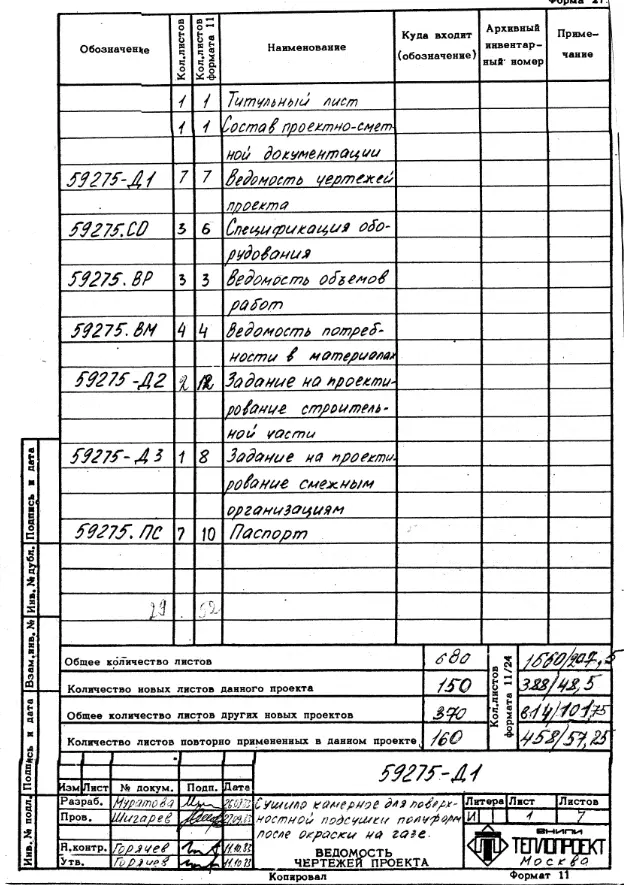 Форма 27.
Обозначение
Кол.листов
Кол.листов формата 11
Наименование
Куда входит (обозначение)
Архивный инвентарный номер
Примечание
1 1 Титульный лист
1 1 Состав проектно-смет-
ной документации
59275-Д1 7 7 Ведомость чертежей
проекта
59275.СО 3 6 Спецификация обо-
рудования
59275.ВР 3 3 Ведомость объемов
работ
59275.ВМ 4 4 Ведомость потреб-
ности в материалах
59275-Д2 2 12 Задание на проекти-
рование строитель-
ной части
59275-Д3 1 8 Задание на проекти-
рование смежным
организациям
59275.ПС 7 10 Паспорт
29 52
Общее количество листов 680
Количество новых листов данного проекта 150
Общее количество листов других новых проектов 370
Количество листов повторно примененных в данном проекте 160
Кол.листов формата 11/24
1660/207,5
388/48,5
814/101,75
458/57,25
Инв. № подл.
Подпись и дата
Взам.инв. №
Инв. № дубл.
Подпись и дата
59275-Д1
Изм Лист № докум. Подп. Дата
Разраб. Муратова
Пров. Шигарев
Н.контр. Горячев 11.10.83
Утв. Горячев 11.10.83
Сушило камерное для поверх-
ностной подсушки полуформ
после окраски на газе.
ВЕДОМОСТЬ
ЧЕРТЕЖЕЙ ПРОЕКТА
Литера Лист Листов
И 1 7
ВНИПИ
ТЕПЛОПРОЕКТ
Москва
Копировал
Формат 11